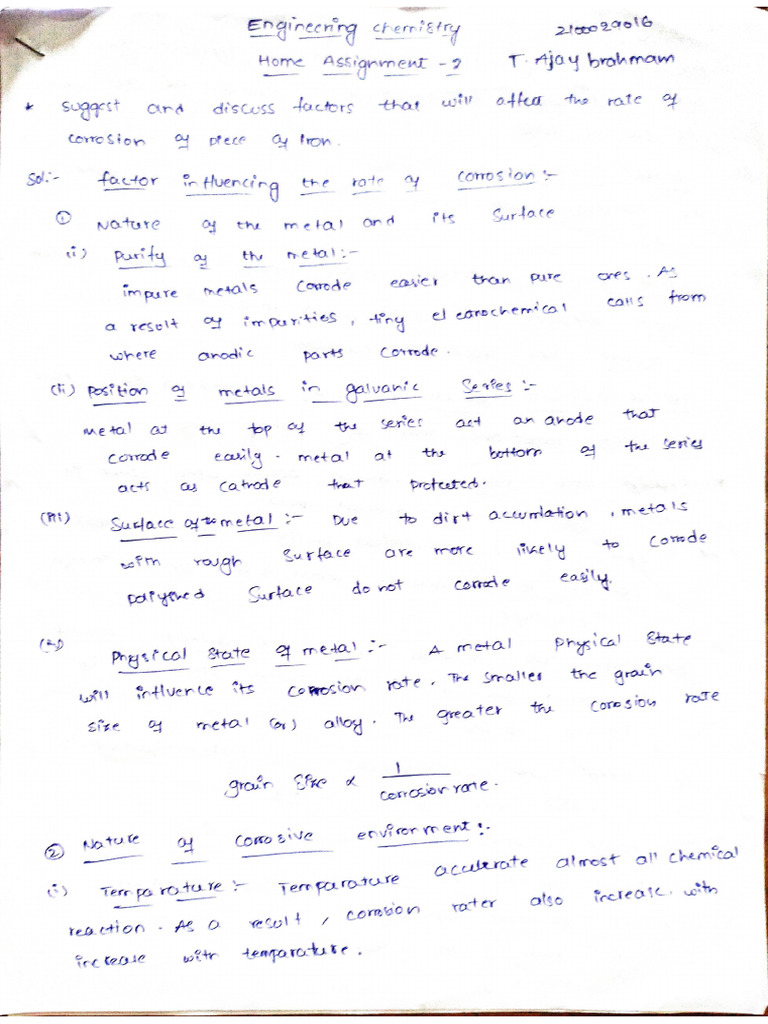 Engineering chemistry 2100029016
Home Assignment - 2 T. Ajay brahmam
* Suggest and discuss factors that will affect the rate of
corrosion of piece of iron.
Sol:- factor influencing the rate of corrosion:-
① Nature of the metal and its Surface
(i) Purity of the metal:-
impure metals corrode easier than pure ones. As
a result of impurities, tiny electrochemical cells from
where anodic parts corrode.
(ii) position of metals in galvanic Series:-
metal at the top of the series act an anode that
corrode easily. metal at the bottom of the series
acts as cathode that protected.
(iii) Surface of the metal:- Due to dirt accumlation, metals
with rough surface are more likely to corrode
polished Surface do not corrode easily.
Physical state of metal:- A metal Physical State
will influence its corrosion rate. The smaller the grain
size of metal (or) alloy. The greater the corrosion rate
grain size ∝ 1
corrosion rate.
② Nature of corrosive environment:-
(i) Temparature:- Temparature accelerate almost all chemical
reaction. As a result, corrosion rater also increase with
increase with temparature.